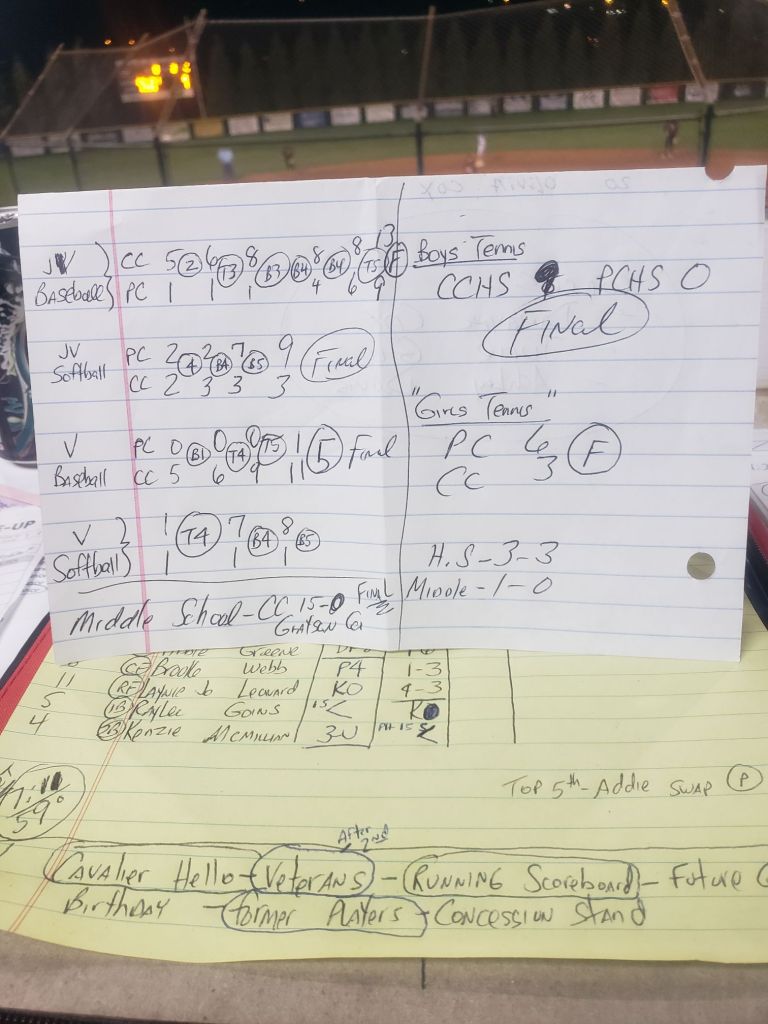 JV CC 5 2 6 T3 8 B3 B4 8 B4 8 T5 13 F
Baseball PC 1 1 1 4 6 9
JV PC 2 4 2 B4 7 B5 9 Final
Softball CC 2 3 3 3
V PC 0 B1 0 T4 0 T5 1 5 Final
Baseball CC 5 6 9 11
V 1 T4 7 B4 8 B5
Softball 1 1 1
Middle School - CC 15-0 Final
Grayson Co
Boys Tennis
CCHS PCHS 0
Final
"Girls Tennis"
PC 6 F
CC 3
H.S - 3 - 3
Middle - 1 - 0
Greene
CF Brooke Webb P4 1-3
11 RF Laynie Jo Leonard KO 4-3
5 1B Kaylee Goins KO
4 2B Kenzie McMillian 3-U
Top 5th - Addie swap P
59°
After 2nd
Cavalier Hello - Veterans - Running Scoreboard - Future
Birthday - Former Players - Concession Stand